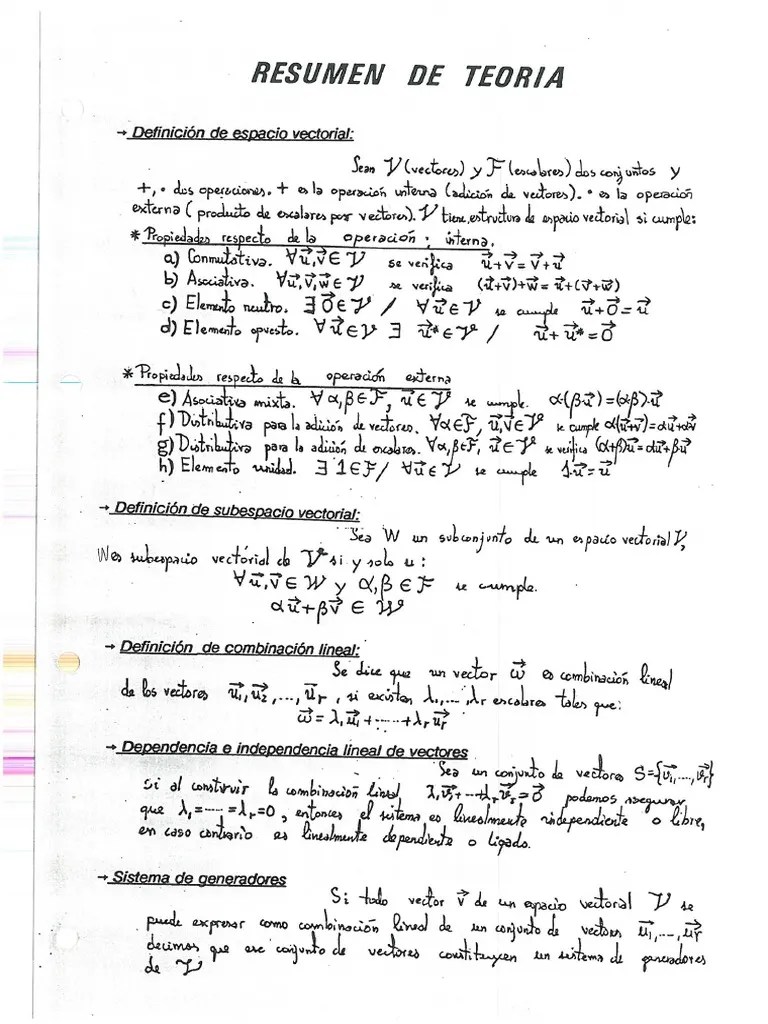 RESUMEN DE TEORIA
→ Definición de espacio vectorial:
Sean V (vectores) y F (escalares) dos conjuntos y
+, • dos operaciones. + es la operación interna (adición de vectores). • es la operación
externa ( producto de escalares por vectores). V tiene estructura de espacio vectorial si cumple:
* Propiedades respecto de la operación interna.
a) Conmutativa. ∀u⃗,v⃗ ∈ V se verifica u⃗+v⃗ = v⃗+u⃗
b) Asociativa. ∀u⃗,v⃗,w⃗ ∈ V se verifica (u⃗+v⃗)+w⃗ = u⃗+(v⃗+w⃗)
c) Elemento neutro. ∃ 0⃗ ∈ V / ∀u⃗ ∈ V se cumple u⃗+0⃗ = u⃗
d) Elemento opuesto. ∀u⃗ ∈ V ∃ u⃗* ∈ V / u⃗+u⃗* = 0⃗
* Propiedades respecto de la operación externa
e) Asociativa mixta. ∀α,β ∈ F, u⃗ ∈ V se cumple. α·(β·u⃗) = (α·β)·u⃗
f) Distributiva para la adición de vectores. ∀α ∈ F, u⃗,v⃗ ∈ V se cumple α(u⃗+v⃗) = αu⃗+αv⃗
g) Distributiva para la adición de escalares. ∀α,β ∈ F, u⃗ ∈ V se verifica (α+β)u⃗ = αu⃗+βu⃗
h) Elemento unidad. ∃ 1 ∈ F / ∀u⃗ ∈ V se cumple 1·u⃗ = u⃗
→ Definición de subespacio vectorial:
Sea W un subconjunto de un espacio vectorial V,
W es subespacio vectorial de V si y solo si :
∀u⃗,v⃗ ∈ W y α,β ∈ F se cumple.
αu⃗+βv⃗ ∈ W
→ Definición de combinación lineal:
Se dice que un vector w⃗ es combinación lineal
de los vectores u⃗₁,u⃗₂,...,u⃗ᵣ , si existen λ₁,...,λᵣ escalares tales que:
w⃗ = λ₁u⃗₁+......+λᵣu⃗ᵣ
→ Dependencia e independencia lineal de vectores
Sea un conjunto de vectores S={v⃗₁,...,v⃗ᵣ}
Si al construir la combinación lineal λ₁v⃗₁+...+λᵣv⃗ᵣ=0⃗ podemos asegurar
que λ₁=......=λᵣ=0 , entonces el sistema es linealmente independiente o libre,
en caso contrario es linealmente dependiente o ligado.
→ Sistema de generadores
Si todo vector v⃗ de un espacio vectorial V se
puede expresar como combinación lineal de un conjunto de vectores u⃗₁,...,u⃗ᵣ
decimos que ese conjunto de vectores constituyen un sistema de generadores
de V